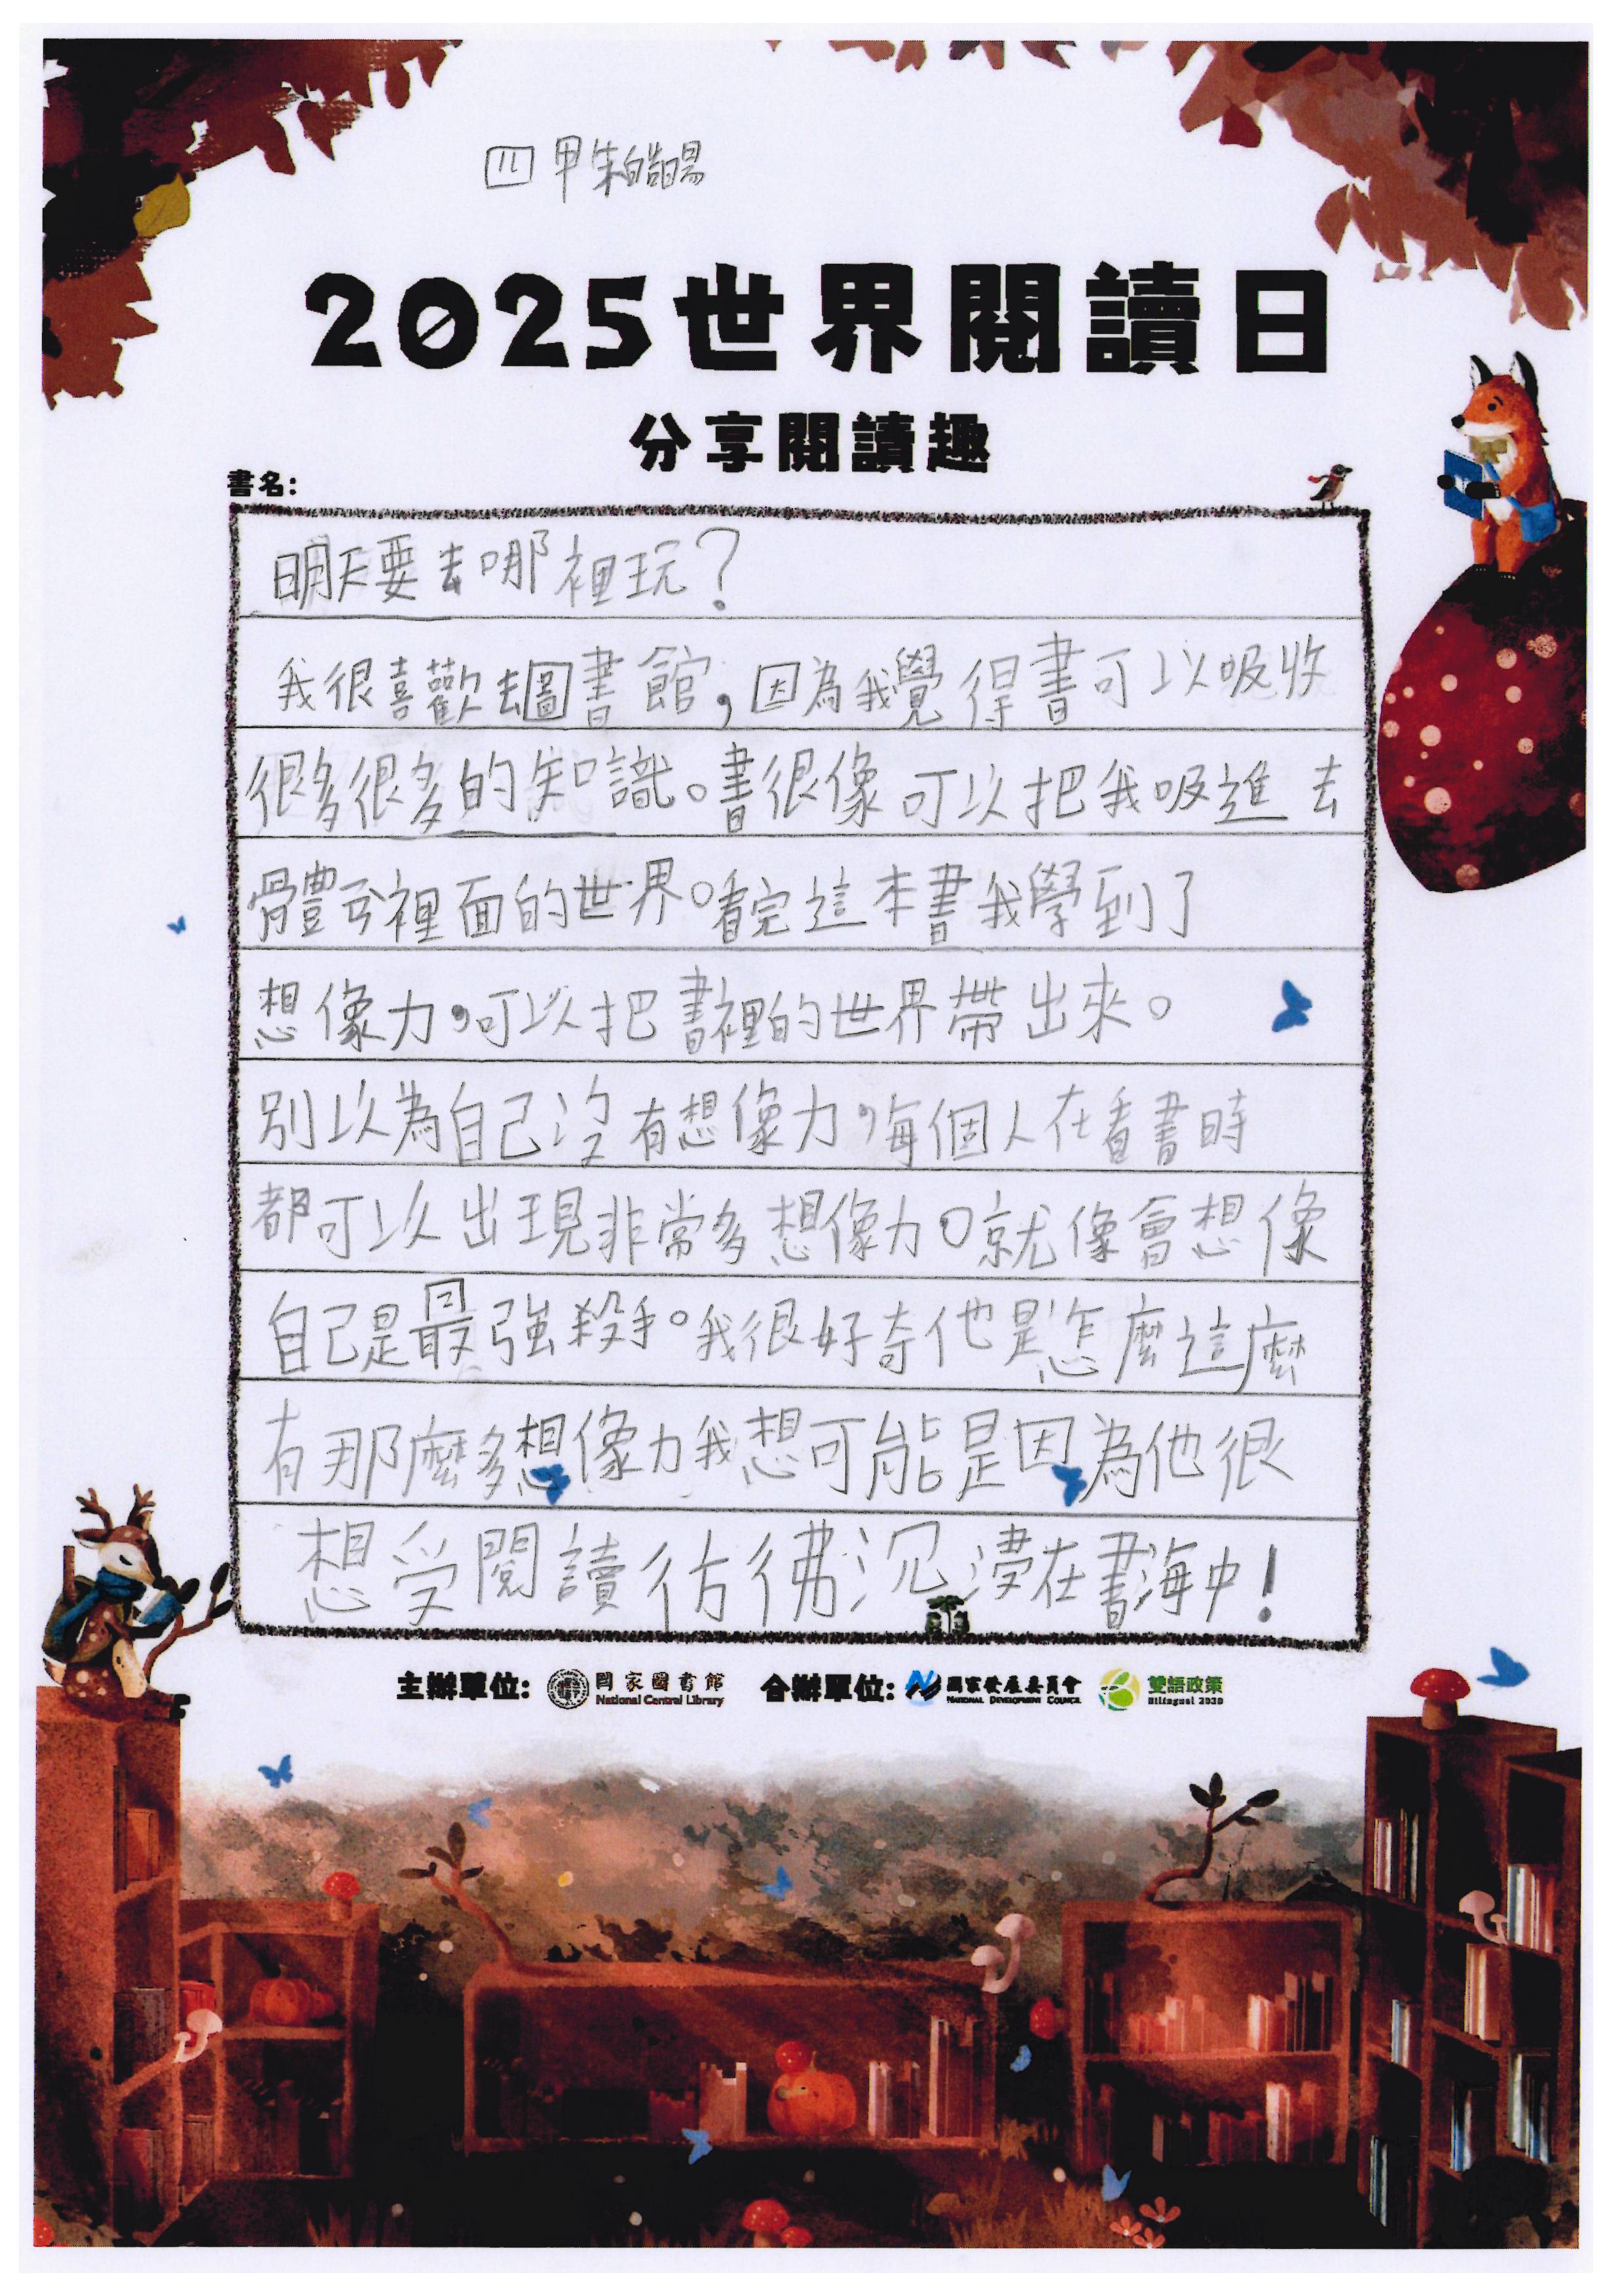 四甲朱皓暘
2025世界閱讀日
分享閱讀趣
書名:
明天要去哪裡玩？
我很喜歡去圖書館，因為我覺得書可以吸收
很多很多的知識。書很像可以把我吸進去
體會裡面的世界。看完這本書我學到了
想像力，可以把書裡的世界帶出來。
別以為自己沒有想像力，每個人在看書時
都可以出現非常多想像力。就像會想像
自己是最強殺手。我很好奇他是怎麼這麼
有那麼多想像力我想可能是因為他很
想受閱讀彷彿沉浸在書海中！
主辦單位: 國家圖書館 National Central Library 合辦單位: 國家發展委員會 National Development Council 雙語政策 Bilingual 2030